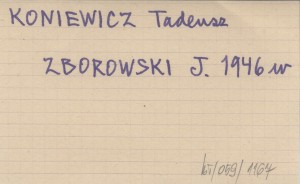 KONIEWICZ Tadeusz
ZBOROWSKI J. 1946 w
/059/1164